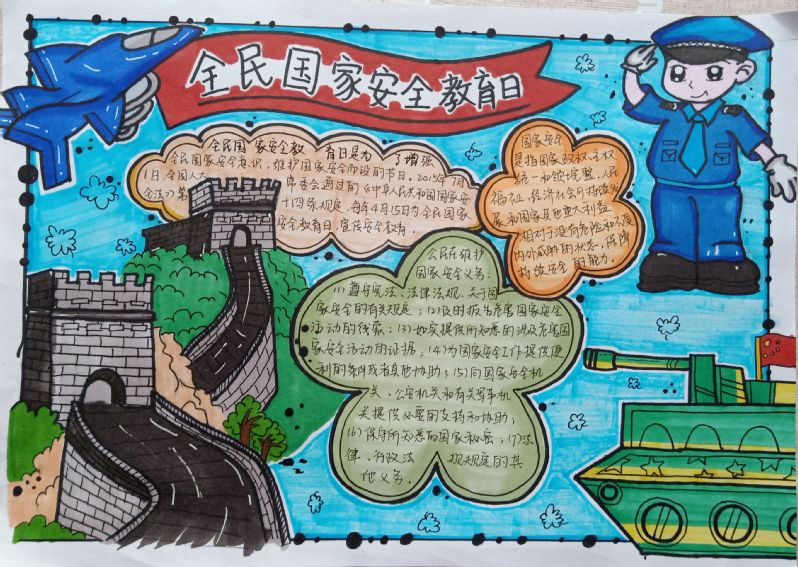 全民国家安全教育日
全民国家安全教 育日是为 了增强
全民国家安全意识，维护国家安全而设的节日。2015年7月
1日，全国人大 常委会通过的《中华人民共和国国家安
全法》第 十四条规定，每年4月15日为全民国家
安全教育日，宣传安全教育。
国家安全
是指国家政权、主权
统一和领土完整、人民
福祉、经济社会可持续发
展和国家其他重大利益
相对于没有危险和不受
内外威胁的状态，保障
持续安全的能力。
公民在维护
国家安全义务：
(1)遵守宪法、法律法规，关于国
家安全的有关规定；(2)及时报告危害国家安全
活动的线索；(3)如实提供所知悉的涉及危害国
家安全活动的证据；(4)为国家安全工作提供便
利的条件或者其他协助；(5)向国家安全机
关、公安机关和有关军事机
关提供必要的支持和协助；
(6)保守所知悉的国家秘密；(7)法
律、行政法 规规定的其
他义务。